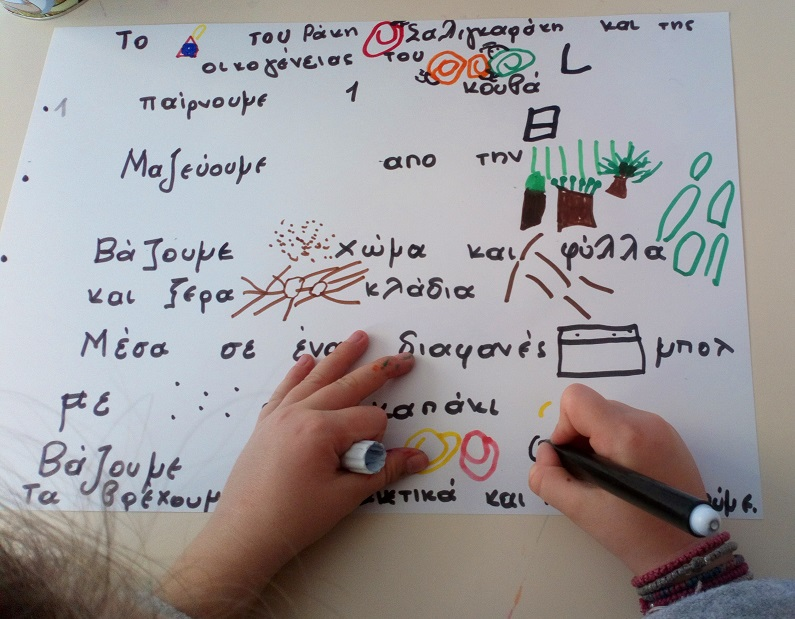 Το του Ράκη Σαλιγκαράκη και της
οικογένειας του
1 παίρνουμε 1 κουβά
Μαζεύουμε απο την
Βάζουμε χώμα και φύλλα
και ξερα κλάδια
Μέσα σε ένα διαφανές μπολ
με καπάκι
Βάζουμε
Τα και